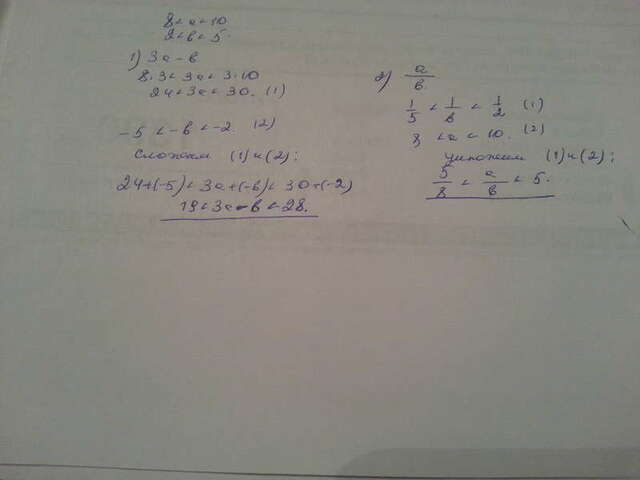 8 < a < 10
2 < в < 5.
1) 3a - в
8·3 < 3a < 3·10
24 < 3a < 30. (1)
-5 < -в < -2. (2)
Сложим (1) и (2):
24+(-5) < 3a+(-в) < 30+(-2)
19 < 3a - в < 28.
2) a/в.
1/5 < 1/в < 1/2 (1)
8 < a < 10. (2)
умножим (1) и (2):
5/8 < a/в < 5.